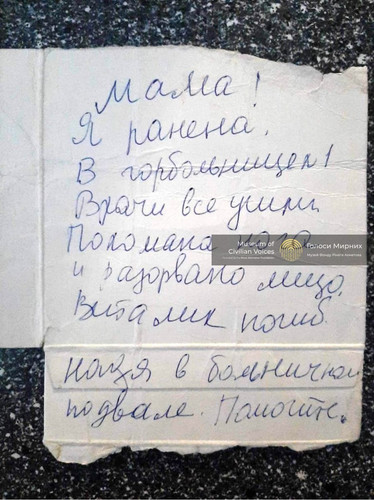 Мама!
Я ранена.
В горбольнице №1
Врачи все ушли.
Поломана нога
и разорвано лицо.
Виталик погиб
Надя в больничном
подвале. Помогите.
Museum of
Civilian Voices
Голоси Мирних